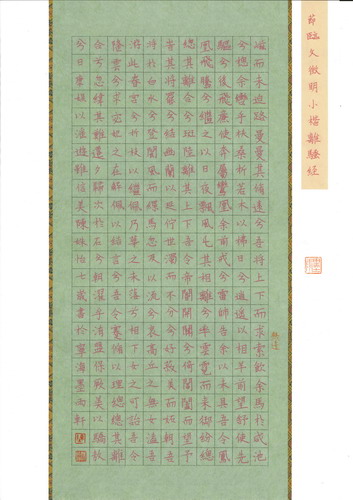 節臨文徵明小楷離騷經
嵫而未迫路曼曼其脩遠兮吾將上下而求索飲余馬於咸池
兮總余轡乎扶桑折若木以拂日兮逍遙以相羊前望舒使先
驅兮後飛廉使奔屬鸞凰余前戒兮雷師告余以未具吾令鳳
凰飛騰兮繼之以日夜飄風屯其相離兮率雲霓而來御紛總
總其離合兮斑陸離其上下吾令帝閽開關兮倚閶闔而望予
其將罷兮結幽蘭以延佇世溷濁而不分兮好蔽美而嫉妒朝吾
將於白水兮登閬風而緤馬忽反以流兮哀高丘之無女溘吾
遊此春宮兮折以繼佩及華之未落兮相下女之可詒吾令
隆雲兮求宓妃之在解佩以結言兮吾令蹇脩以理總總其離
合兮忽緯其難遷夕歸次於石兮朝濯乎洧盤保厥美以驕傲
兮日康娛以淫遊雖信美陳姝怡七歲書於寧海墨雨軒